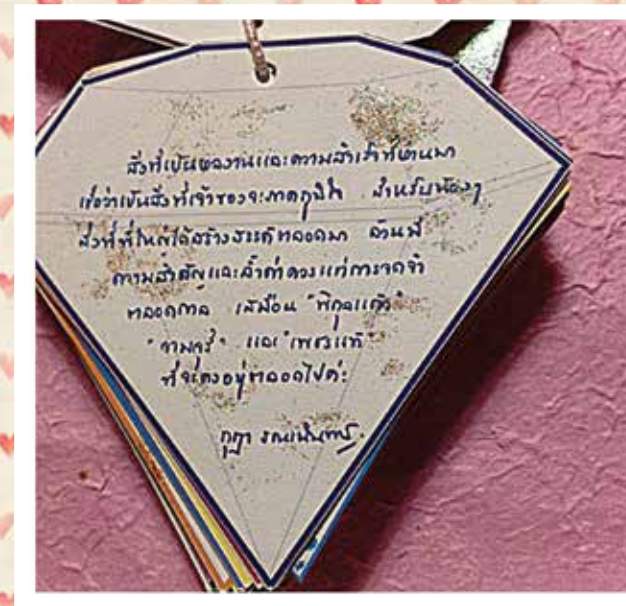 สิ่งที่เป็นผลงานและความสำเร็จที่ผ่านมา
เชื่อว่าเป็นสิ่งที่เจ้าของจะภาคภูมิใจ สำหรับน้องๆ
สิ่งที่พี่ใหญ่ได้สร้างสรรค์ตลอดมา ล้วนมี
ความสำคัญและล้ำค่าควรแก่การจดจำ
ตลอดกาล เสมือน "พิกุลแก้ว"
"จามจุรี" และ "เพชรแท้"
ที่จะคงอยู่ตลอดไปค่ะ